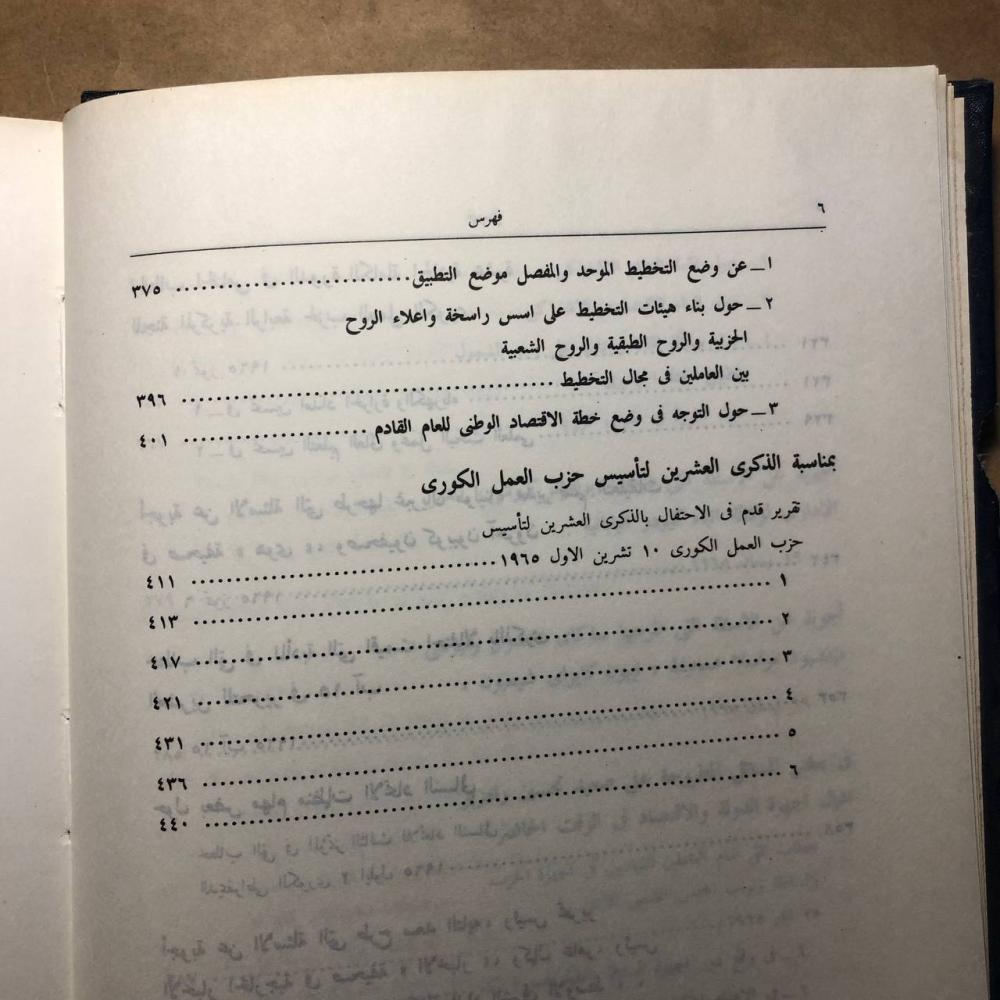 ٦
فهرس
١ـ عن وضع التخطيط الموحد والمفصل موضع التطبيق ........................... ٣٧٥
٢ـ حول بناء هيئات التخطيط على اسس راسخة واعلاء الروح
الحزبية والروح الطبقية والروح الشعبية
بين العاملين فى مجال التخطيط ..................................... ٣٩٦
٣ـ حول التوجه فى وضع خطة الاقتصاد الوطنى للعام القادم .................... ٤٠١
بمناسبة الذكرى العشرين لتأسيس حزب العمل الكورى
تقرير قدم فى الاحتفال بالذكرى العشرين لتأسيس
حزب العمل الكورى ١٠ تشرين الاول ١٩٦٥ ............................... ٤١١
١ ............................................................ ٤١٣
٢ ............................................................ ٤١٧
٣ ............................................................ ٤٢١
٤ ............................................................ ٤٣١
٥ ............................................................ ٤٣٦
٦ ............................................................ ٤٤٠